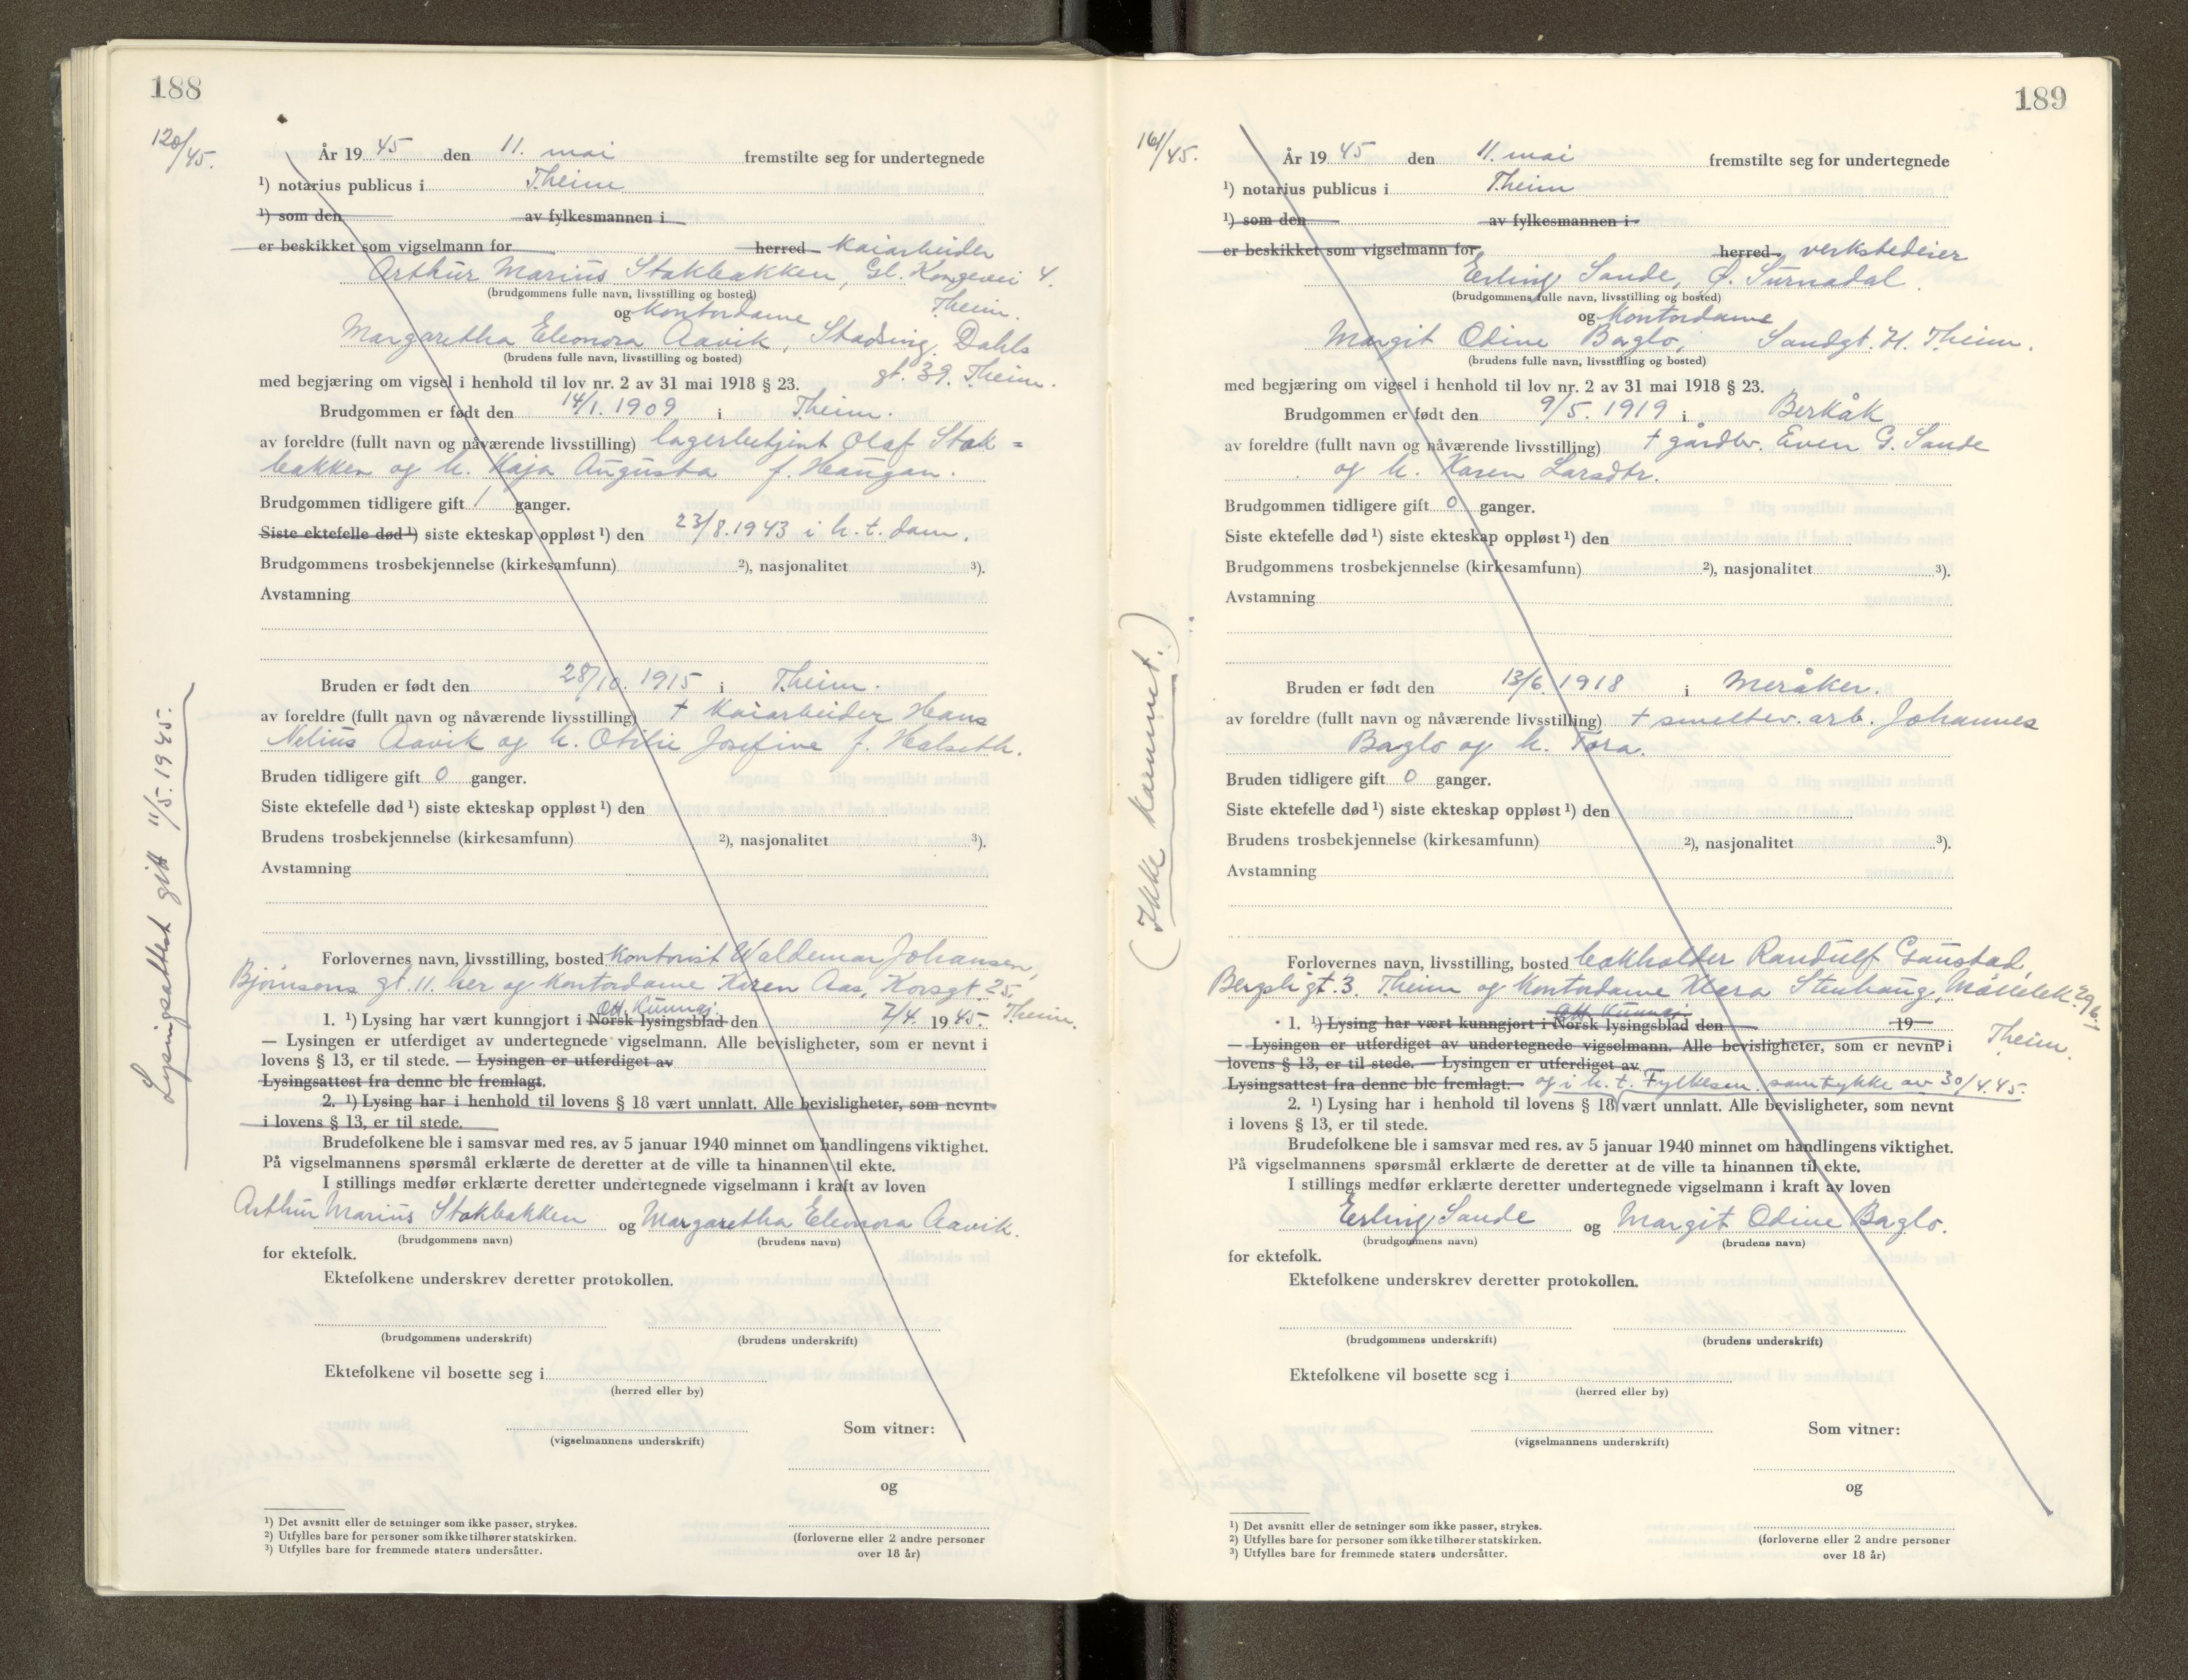 188
120/45.
År 19 45 den 11. mai fremstilte seg for undertegnede
¹) notarius publicus i Theim
¹) som den av fylkesmannen i
er beskikket som vigselmann for herred kaiarbeider
Arthur Marius Stokbakken, Gl. Kongevei 4.
(brudgommens fulle navn, livsstilling og bosted) Theim.
og kontordame
Margaretha Eleonora Aavik, Stadsing. Dahls
(brudens fulle navn, livsstilling og bosted)
gt. 39. Theim.
med begjæring om vigsel i henhold til lov nr. 2 av 31 mai 1918 § 23.
Brudgommen er født den 14/1. 1909 i Theim.
av foreldre (fullt navn og nåværende livsstilling) lagerbetjent Olaf Stok=
bakken og h. Kaja Augusta f. Haugan.
Brudgommen tidligere gift 1 ganger.
Siste ektefelle død ¹) siste ekteskap oppløst ¹) den 23/8.1943 i h. t. dom.
Brudgommens trosbekjennelse (kirkesamfunn) ²), nasjonalitet ³).
Avstamning
Bruden er født den 28/10. 1915 i Theim.
av foreldre (fullt navn og nåværende livsstilling) + kaiarbeider Hans
Nelius Aavik og h. Otilie Josefine f. Halseth.
Bruden tidligere gift 0 ganger.
Siste ektefelle død ¹) siste ekteskap oppløst ¹) den
Brudens trosbekjennelse (kirkesamfunn) ²), nasjonalitet ³).
Avstamning
Lysingsattest gitt 11/5. 1945.
Forlovernes navn, livsstilling, bosted kontorist Waldemar Johansen,
Bjørnsons gt. 11. her og kontordame Karen Aas, Korsgt. 25,
Off. Kunngj. Theim.
1. ¹) Lysing har vært kunngjort i Norsk lysingsblad den 7/4. 1945.
— Lysingen er utferdiget av undertegnede vigselmann. Alle bevisligheter, som er nevnt i
lovens § 13, er til stede. — Lysingen er utferdiget av
Lysingsattest fra denne ble fremlagt.
2. ¹) Lysing har i henhold til lovens § 18 vært unnlatt. Alle bevisligheter, som nevnt
i lovens § 13, er til stede.
Brudefolkene ble i samsvar med res. av 5 januar 1940 minnet om handlingens viktighet.
På vigselmannens spørsmål erklærte de deretter at de ville ta hinannen til ekte.
I stillings medfør erklærte deretter undertegnede vigselmann i kraft av loven
Arthur Marius Stokbakken og Margaretha Eleonora Aavik.
(brudgommens navn) (brudens navn)
for ektefolk.
Ektefolkene underskrev deretter protokollen.
(brudgommens underskrift) (brudens underskrift)
Ektefolkene vil bosette seg i
(herred eller by)
Som vitner:
(vigselmannens underskrift)
og
¹) Det avsnitt eller de setninger som ikke passer, strykes.
²) Utfylles bare for personer som ikke tilhører statskirken.
³) Utfylles bare for fremmede staters undersåtter.
(forloverne eller 2 andre personer
over 18 år)
189
161/45.
År 19 45 den 11. mai fremstilte seg for undertegnede
¹) notarius publicus i Theim
¹) som den av fylkesmannen i
er beskikket som vigselmann for herred verkstedeier
Erling Sande, Ø. Surnadal.
(brudgommens fulle navn, livsstilling og bosted)
og kontordame
Margit Odine Baglo, Sandgt. 71. Theim.
(brudens fulle navn, livsstilling og bosted)
med begjæring om vigsel i henhold til lov nr. 2 av 31 mai 1918 § 23.
Brudgommen er født den 9/5. 1919 i Berkåk
av foreldre (fullt navn og nåværende livsstilling) + gårdbr. Even G. Sande
og h. Karen Larsdtr.
Brudgommen tidligere gift 0 ganger.
Siste ektefelle død ¹) siste ekteskap oppløst ¹) den
Brudgommens trosbekjennelse (kirkesamfunn) ²), nasjonalitet ³).
Avstamning
(Ikke kommet.)
Bruden er født den 13/6. 1918 i Meråker.
av foreldre (fullt navn og nåværende livsstilling) + smeltev. arb. Johannes
Baglo og h. Tora.
Bruden tidligere gift 0 ganger.
Siste ektefelle død ¹) siste ekteskap oppløst ¹) den
Brudens trosbekjennelse (kirkesamfunn) ²), nasjonalitet ³).
Avstamning
Forlovernes navn, livsstilling, bosted bokholder Randulf Gaustad,
Bergsli gt. 3. Theim og kontordame Klara Stenhaug, 
Off. Kunngj.
1. ¹) Lysing har vært kunngjort i Norsk lysingsblad den 19 Theim.
— Lysingen er utferdiget av undertegnede vigselmann. Alle bevisligheter, som er nevnt i
lovens § 13, er til stede. — Lysingen er utferdiget av
Lysingsattest fra denne ble fremlagt. og i h. t. Fylkesm. samtykke av 30/4.45.
2. ¹) Lysing har i henhold til lovens § 18 vært unnlatt. Alle bevisligheter, som nevnt
i lovens § 13, er til stede.
Brudefolkene ble i samsvar med res. av 5 januar 1940 minnet om handlingens viktighet.
På vigselmannens spørsmål erklærte de deretter at de ville ta hinannen til ekte.
I stillings medfør erklærte deretter undertegnede vigselmann i kraft av loven
Erling Sande og Margit Odine Baglo.
(brudgommens navn) (brudens navn)
for ektefolk.
Ektefolkene underskrev deretter protokollen.
(brudgommens underskrift) (brudens underskrift)
Ektefolkene vil bosette seg i
(herred eller by)
Som vitner:
(vigselmannens underskrift)
og
¹) Det avsnitt eller de setninger som ikke passer, strykes.
²) Utfylles bare for personer som ikke tilhører statskirken.
³) Utfylles bare for fremmede staters undersåtter.
(forloverne eller 2 andre personer
over 18 år)